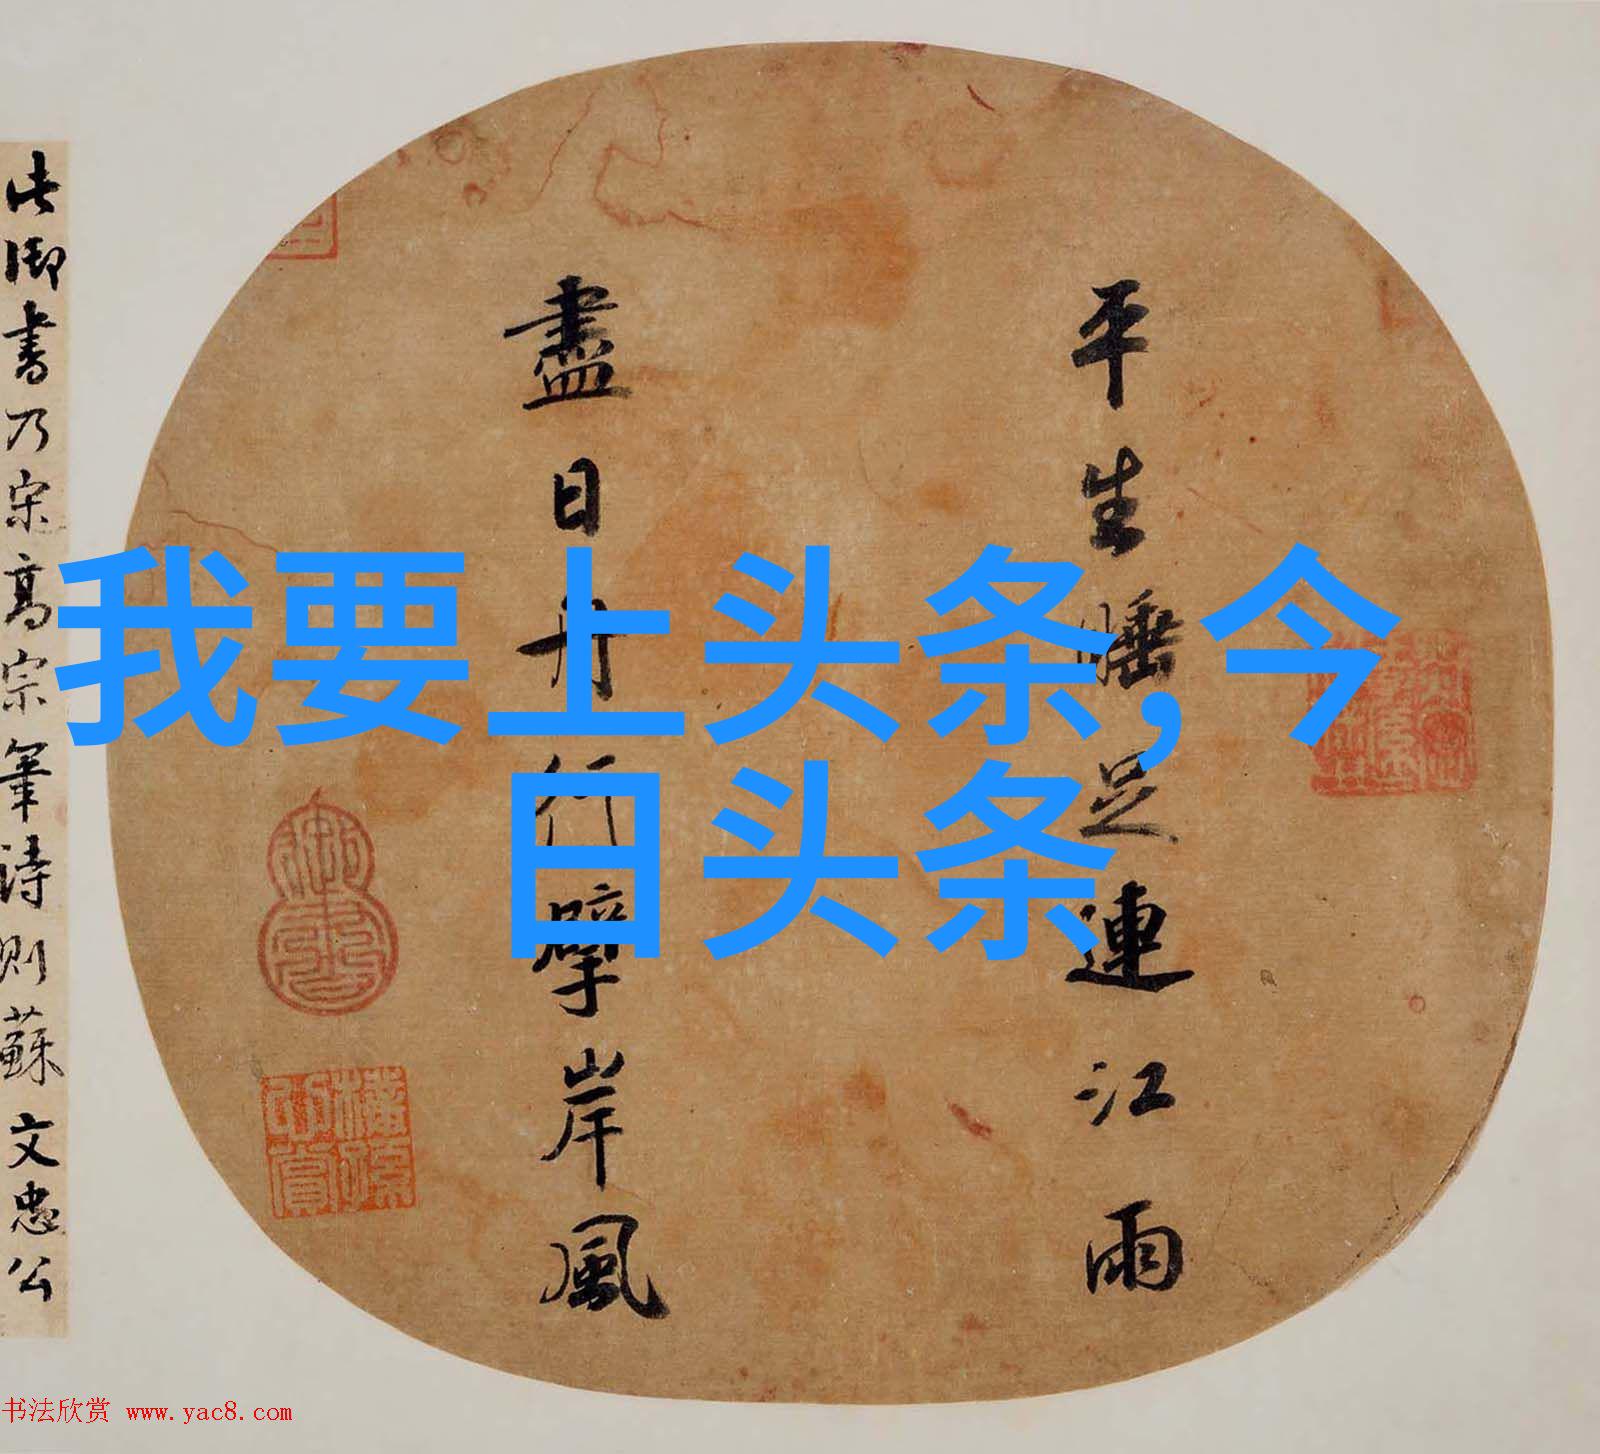 平生睡足連江雨
盡日舟行擘岸風
此御書乃宋高宗筆詩則蘇文忠公
我要上头条,今
日头条
书法欣赏 www.yac8.com